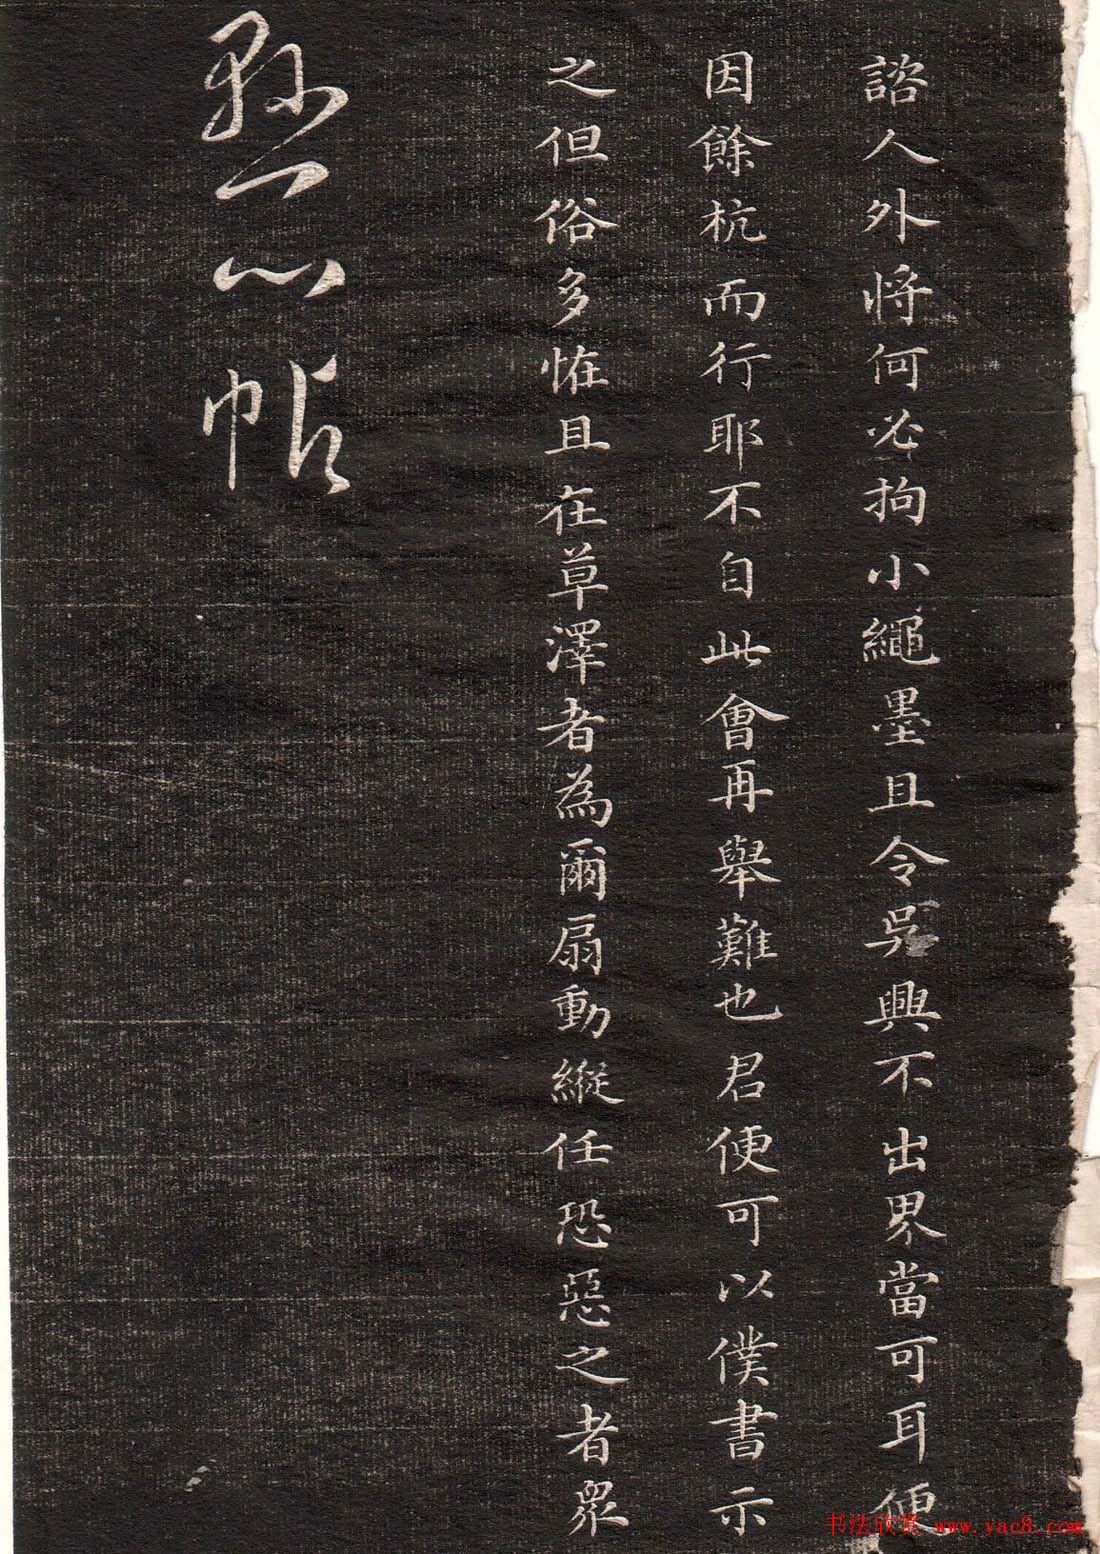 諮人外將何必拘小繩墨且令吳興不出界當可耳便
因餘杭而行耶不自此會再舉難也君便可以僕書示
之但俗多恠且在草澤者為爾扇動縱任恐惡之者眾
懸心帖
书法欣赏 www.yac8.com